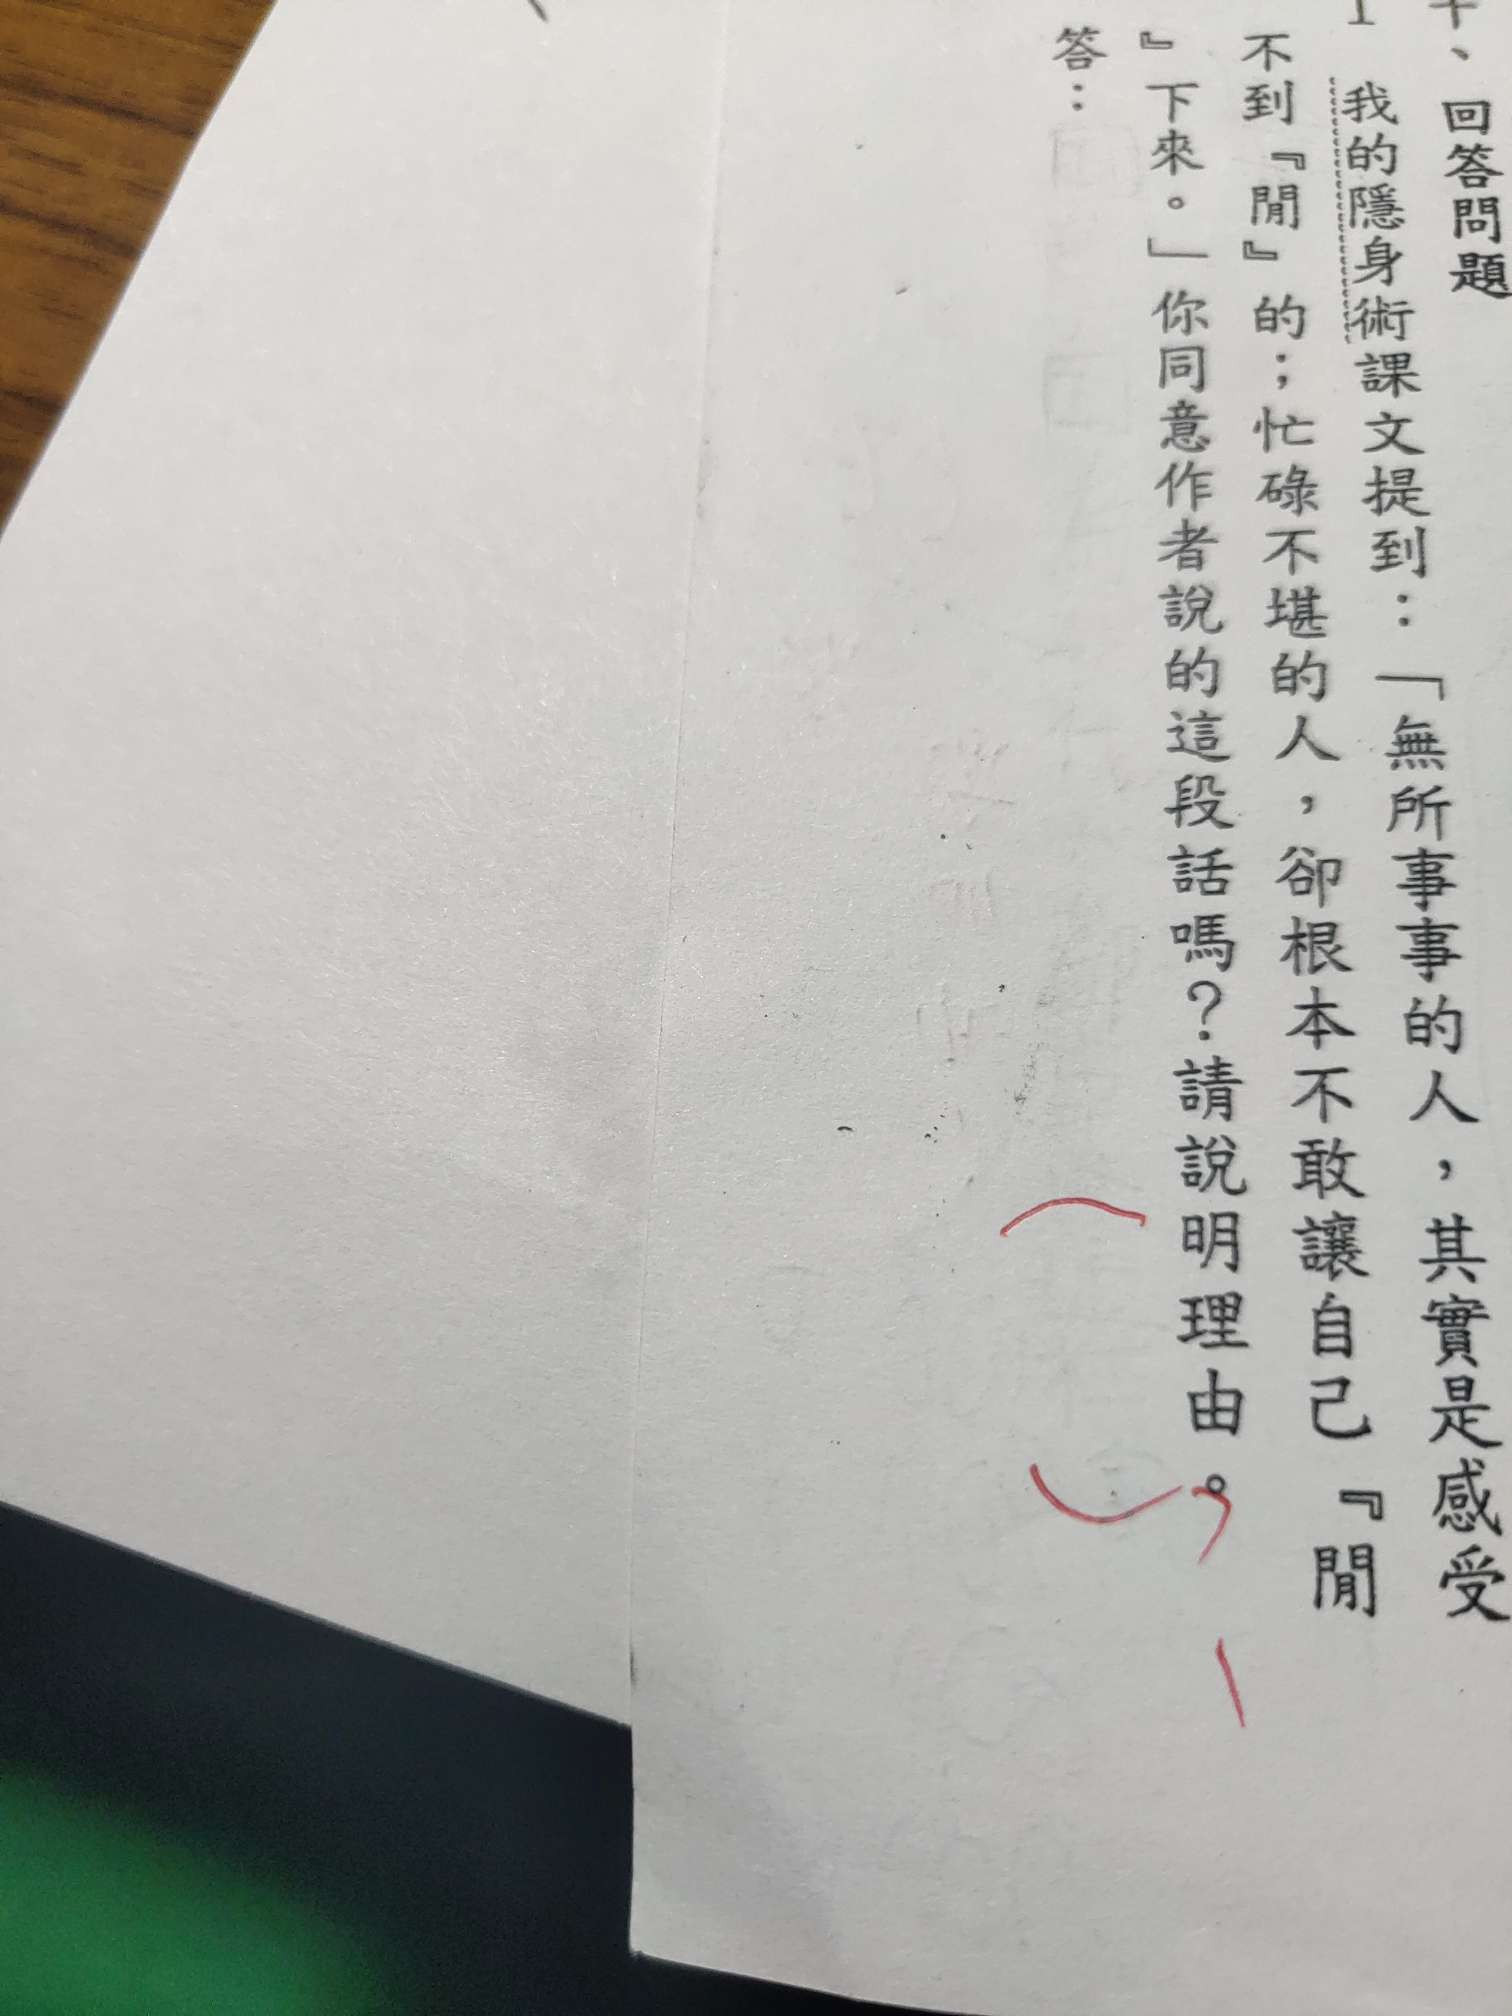 十、回答問題
1 我的隱身術課文提到：「無所事事的人，其實是感受
不到『閒』的；忙碌不堪的人，卻根本不敢讓自己『閒
』下來。」你同意作者說的這段話嗎？請說明理由。
答：